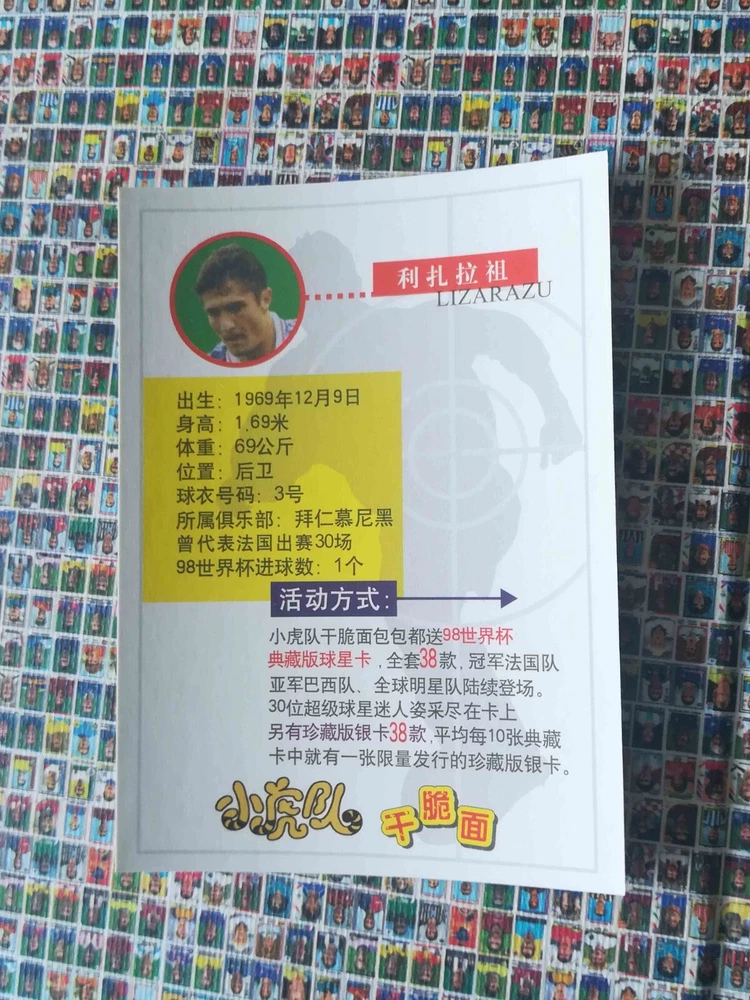 利扎拉祖
LIZARAZU
出生: 1969年12月9日
身高: 1.69米
体重: 69公斤
位置: 后卫
球衣号码: 3号
所属俱乐部: 拜仁慕尼黑
曾代表法国出赛30场
98世界杯进球数: 1个
活动方式:
小虎队干脆面包包都送98世界杯
典藏版球星卡,全套38款,冠军法国队
亚军巴西队、全球明星队陆续登场。
30位超级球星迷人姿采尽在卡上
另有珍藏版银卡38款,平均每10张典藏
卡中就有一张限量发行的珍藏版银卡。
小虎队 干脆面